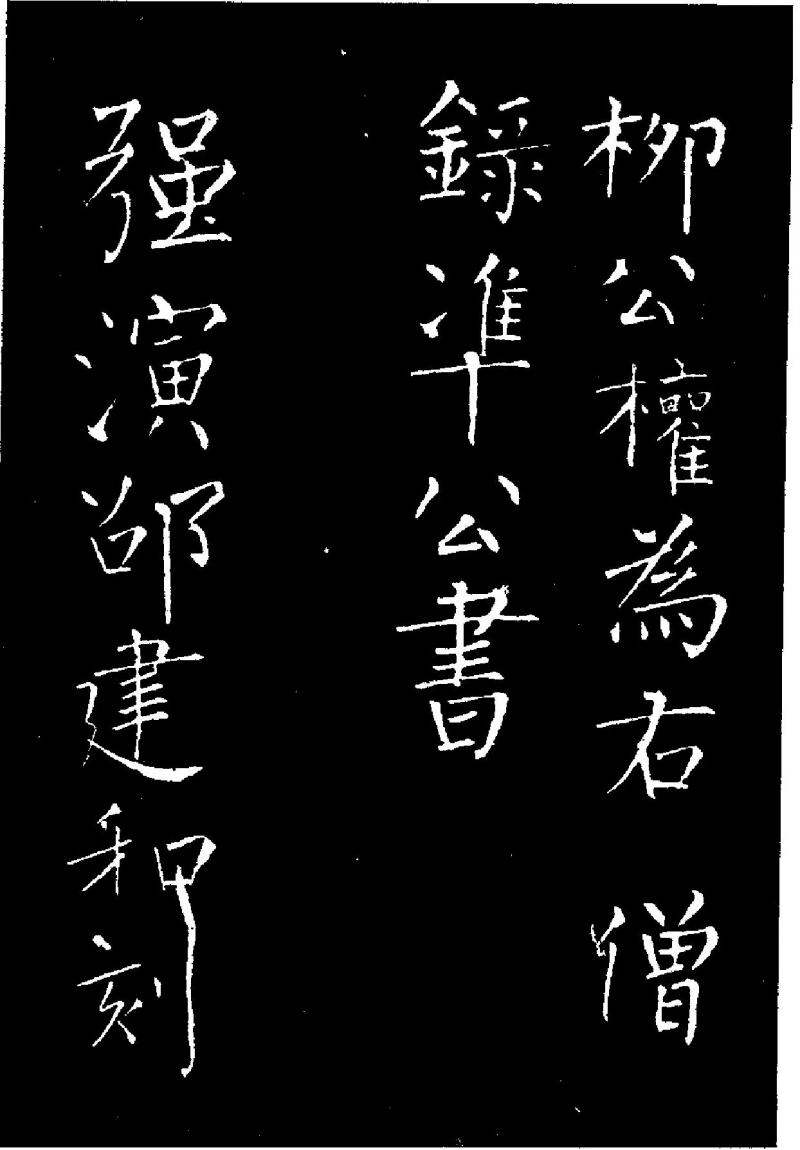 柳公權為右僧
錄準公書
强演邵建和刻